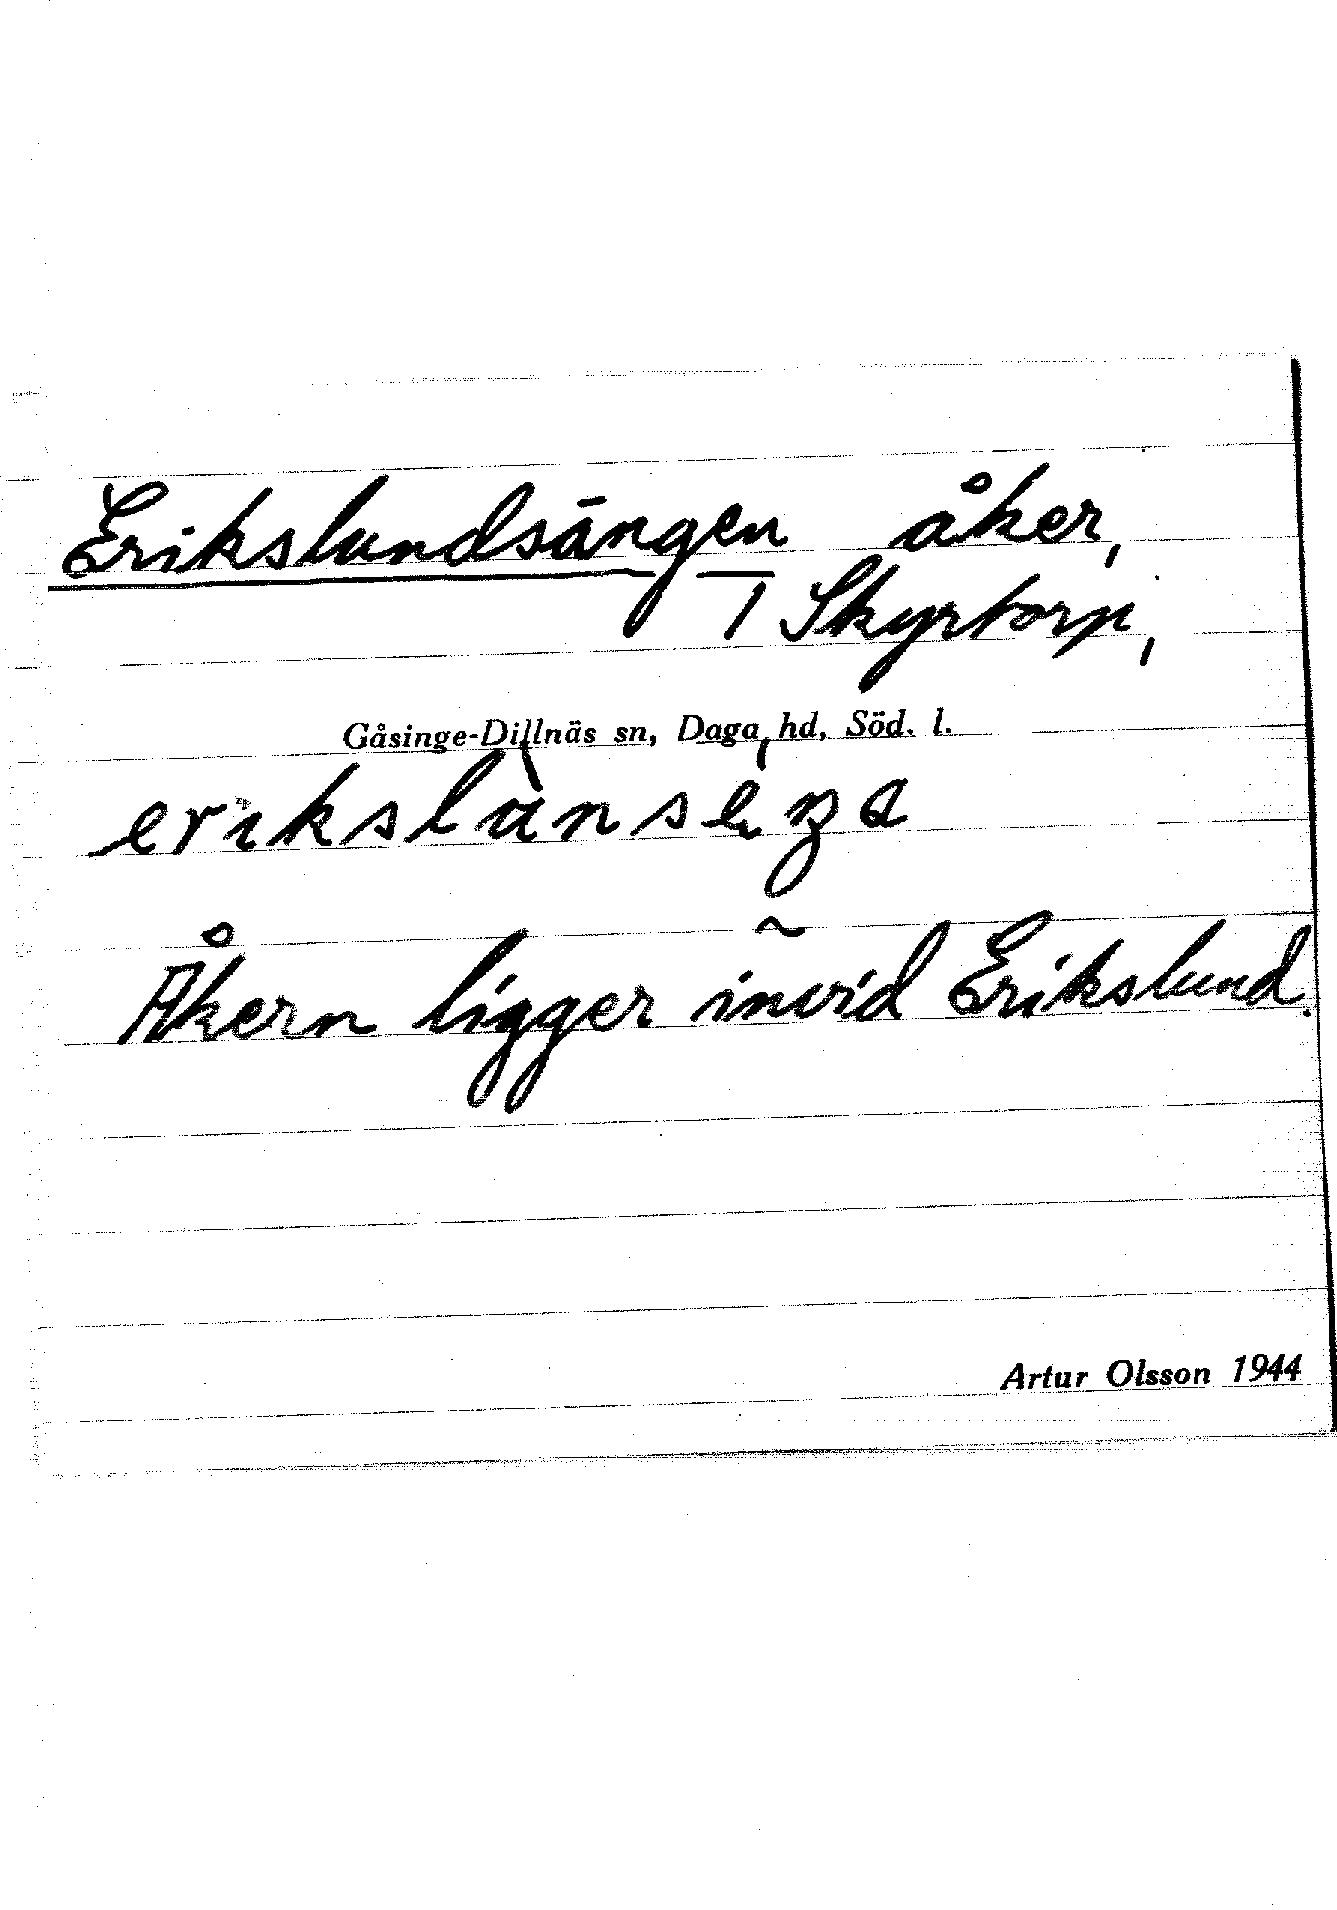 Erikslundsängen åker,
/ Skyrtorp,
Gåsinge-Dillnäs sn, Daga hd, Söd. l.
Åkern ligger invid Erikslund.
Artur Olsson 1944